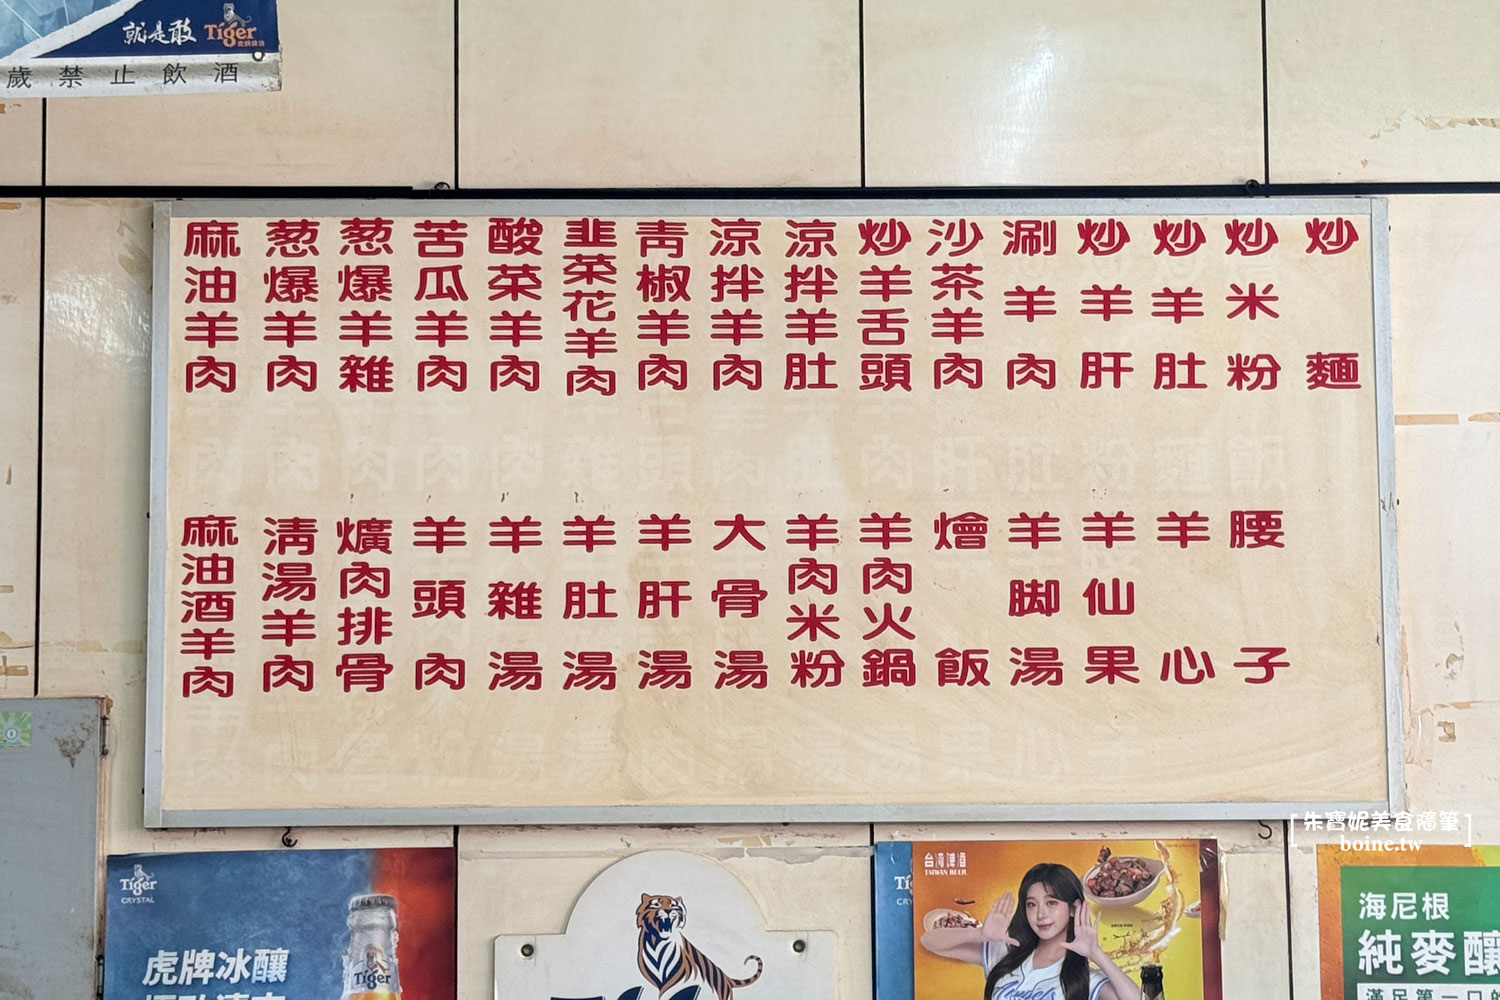 就是敢 Tiger
歲禁止飲酒
麻油羊肉
葱爆羊肉
葱爆羊雜
苦瓜羊肉
酸菜羊肉
韭菜花羊肉
青椒羊肉
涼拌羊肉
涼拌羊肚
炒羊舌頭
沙茶羊肉
涮羊肉
炒羊肝
炒羊肚
炒米粉
炒麵
麻油酒羊肉
清湯羊肉
爌肉排骨
羊頭肉
羊雜湯
羊肚湯
羊肝湯
大骨湯
羊肉米粉
羊肉火鍋
燴飯
羊脚湯
羊仙果
羊心
腰子
[朱寶妮美食隨筆]
boine.tw
Tiger
CRYSTAL
虎牌冰釀
Tiger
台灣啤酒
TAIWAN BEER
Angels
海尼根
純麥釀